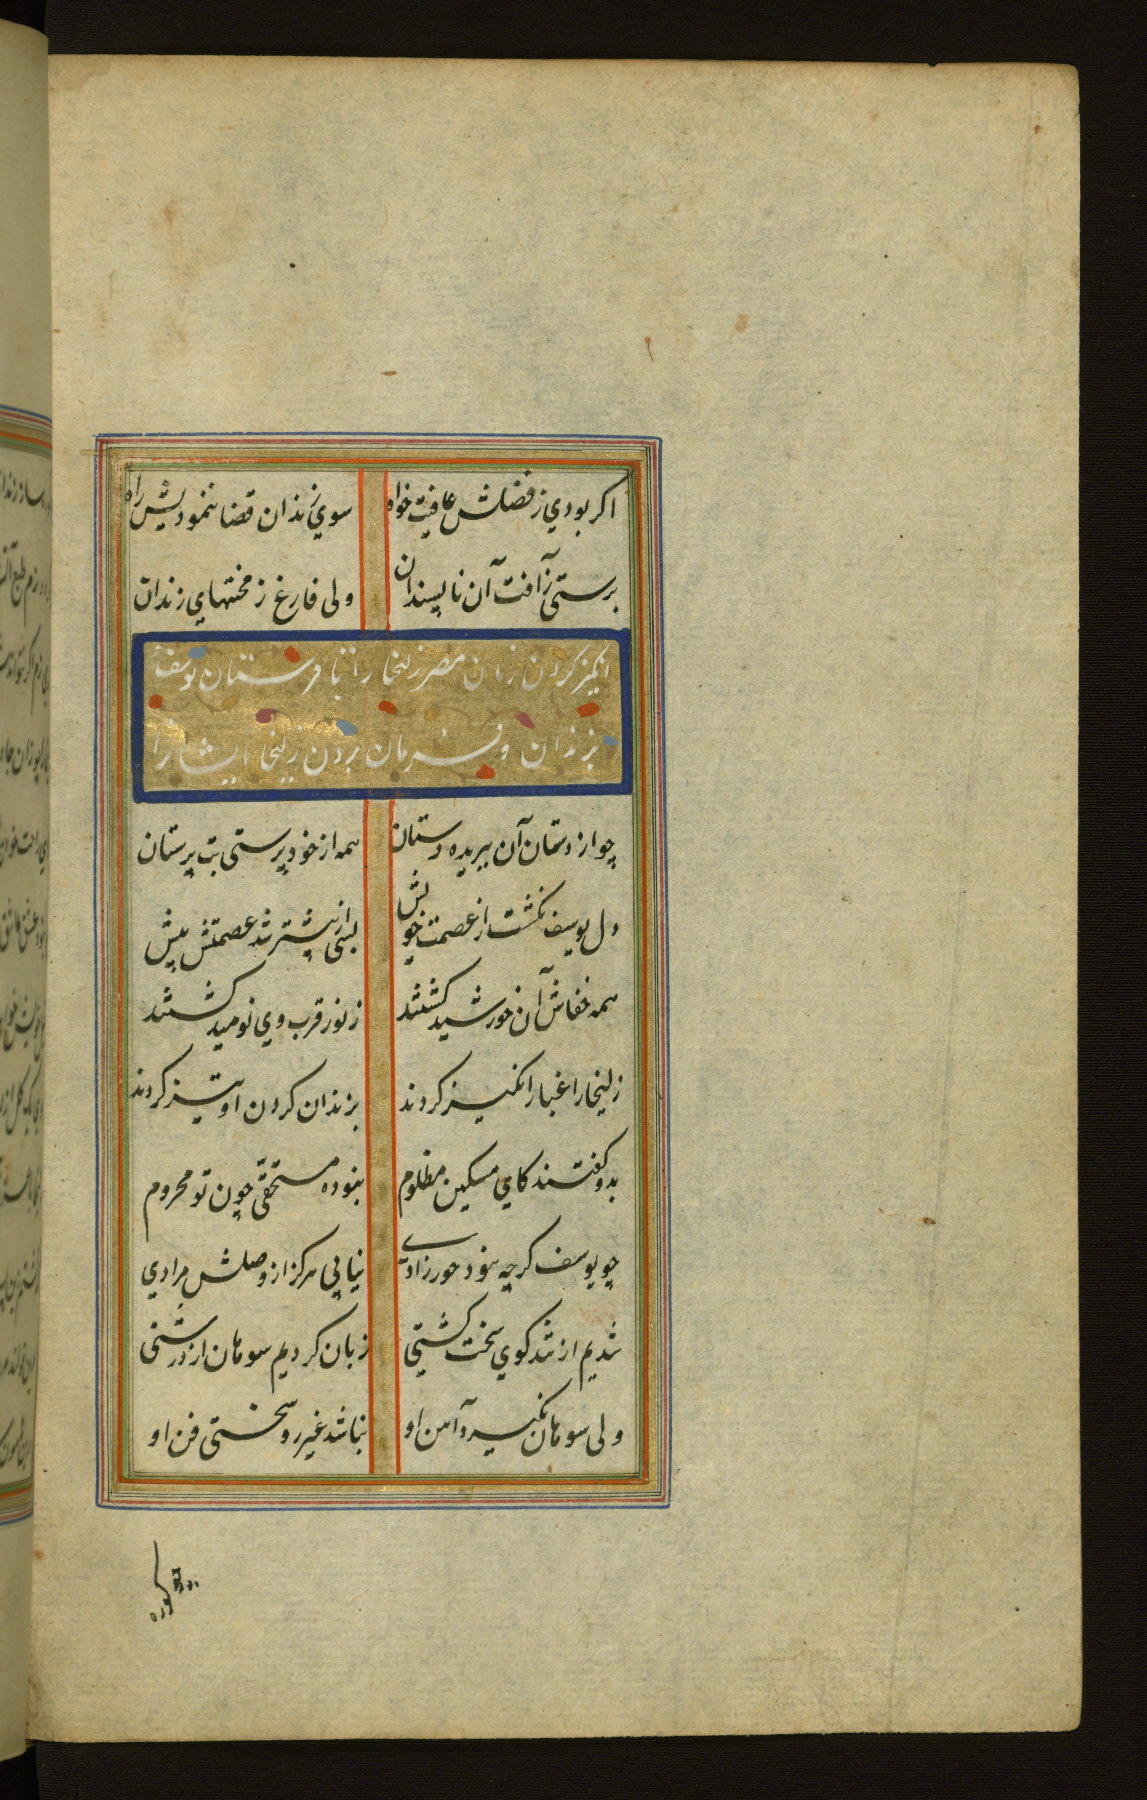 اكر بودي ز فضلش عافيت خواه سوي زندان قضا ننموديش راه
برستي ز آفت آن ناپسندان ولي فارغ ز محنتهاي زندان
انكيز كردن زنان مصر زليخا را بفرستادن يوسف
بزندان و فرمان بردن زليخا ايشانرا
چو از دستان آن ببريده دستان همه از خود پرستي بت پرستان
دل يوسف نكشت از عصمت خويش بسي از پيشتر شد عصمتش بيش
همه خفاش آن خورشيد كشتند ز نور قرب وي نوميد كشتند
زليخا را غبار انكيز كردند بزندان كردن او تيز كردند
بدو كفتند كاي مسكين مظلوم نبوده مستحقي چون تو محروم
چو يوسف كرچه نبود حور زادي نيابي هركز از وصلش مرادي
شديم از تند كوي سخت كشتي زبان كرديم سوهان از درشتي
ولي سوهان نكيرد آهن او نباشد غير روسختي فن او
چو كوره